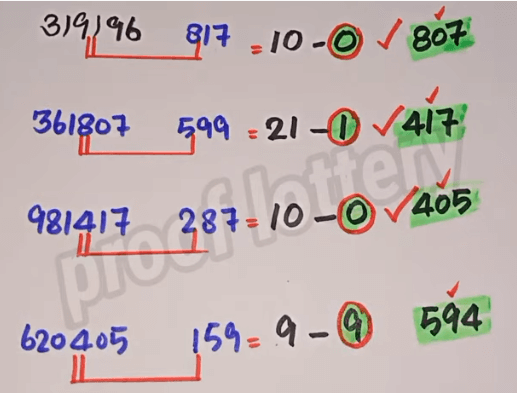 319196 817 = 10 - 0 ✓ 807
361807 599 = 21 - 1 ✓ 417
981417 287 = 10 - 0 ✓ 405
620405 159 = 9 - 9 594
proof lottery